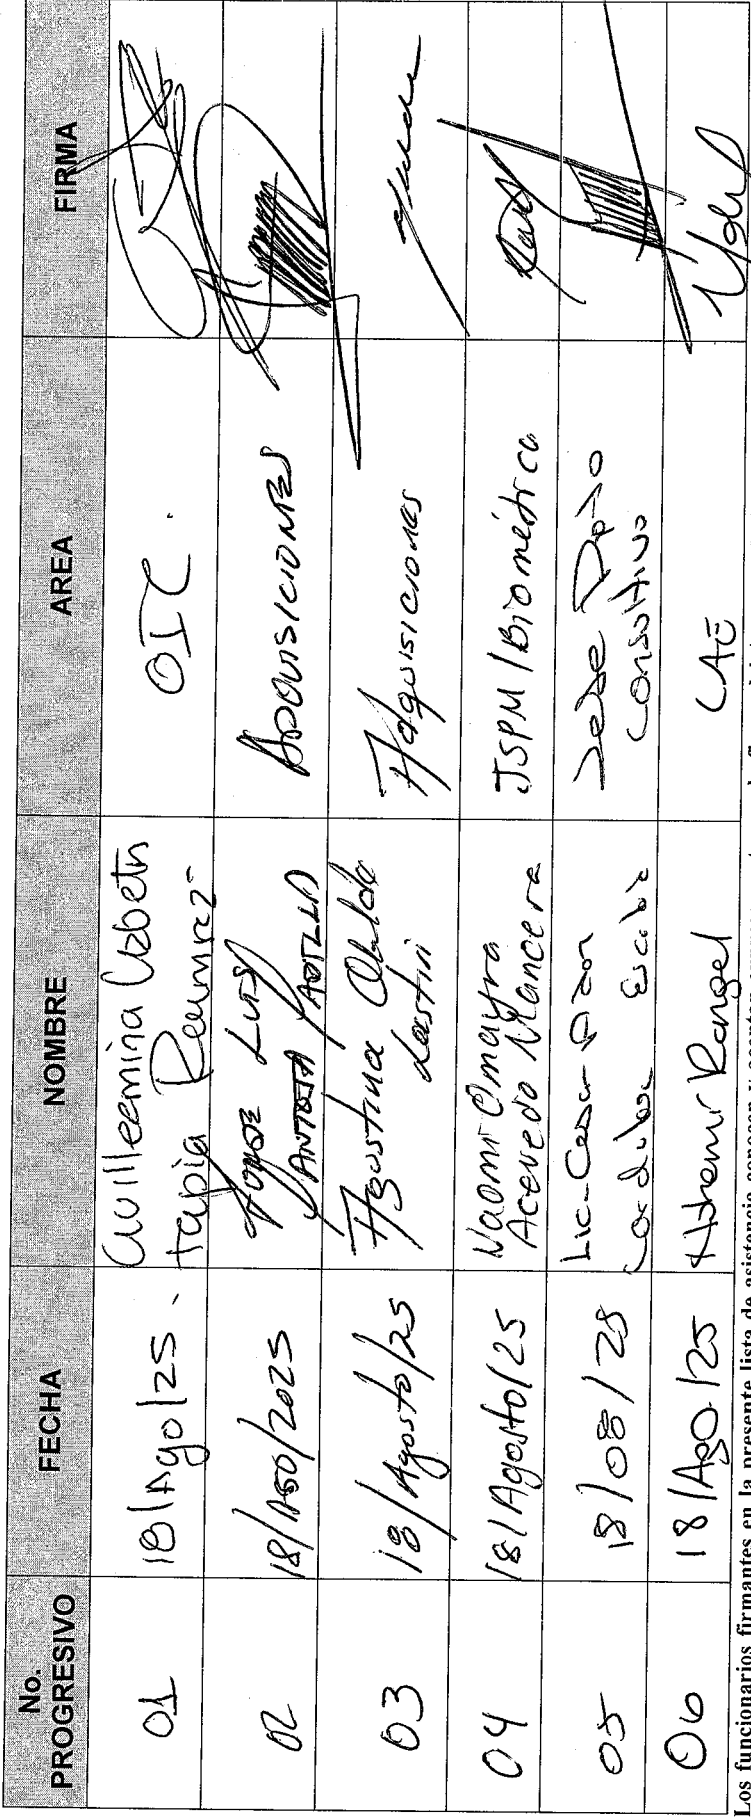 No. PROGRESIVO FECHA NOMBRE AREA FIRMA
01 18/Ago/25. Guillermina Lizbeth
Tapia Ramirez OIC.
02 18/AGO/2025 JORGE LUIS
PADILLA ADQUISICIONES
03 18/Agosto/25 Agustina
Adquisiciones
04 18/Agosto/25 Naomi Omayra
Acevedo Mancera JSPM/Biomédica
05 18/08/25 Lic. Cesar
Jefe Dpto
Consultivo
06 18/Ago/25 Rangel CAE
Los funcionarios firmantes en la presente lista de asistencia conocen y aceptan